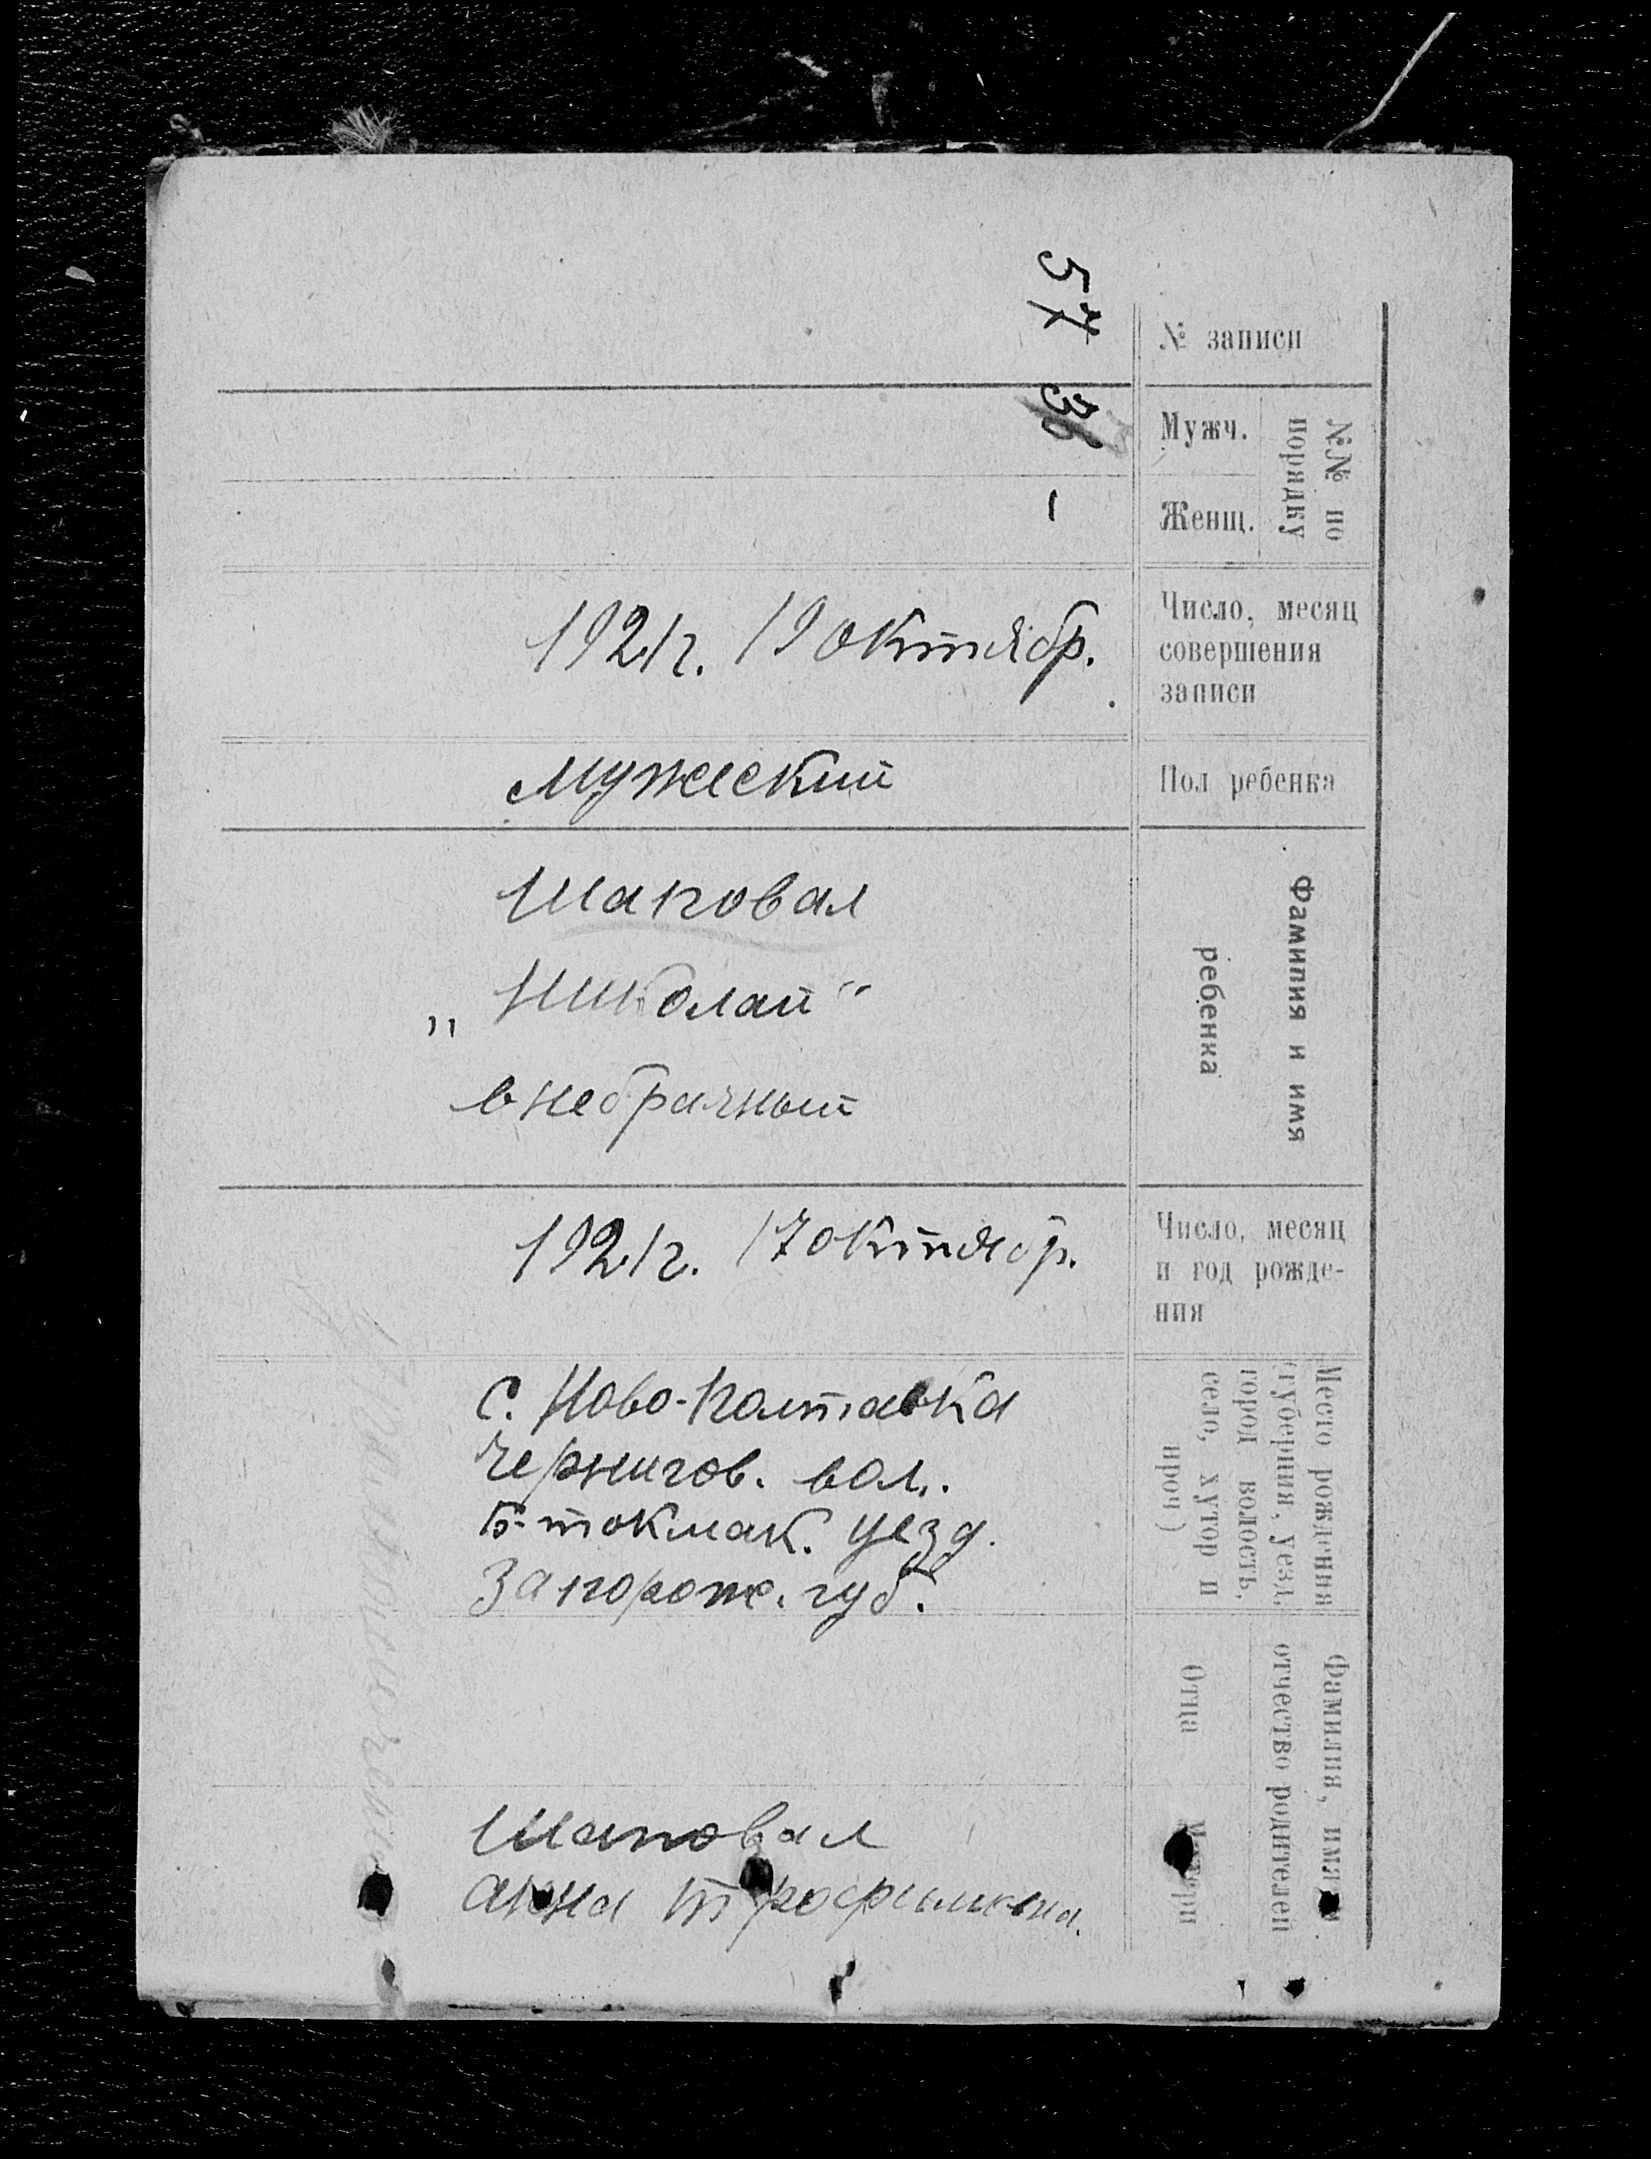 № записи
57
№№ по
порядку
Мужч.
Женщ.
–
Число, месяц
совершения
записи
1921г. 19 октябр.
Пол ребенка
мужеский
Фамилия и имя
ребенка
Шаповал
„ Николай“
внебрачный
Число, месяц
и год рожде-
ния
1921г. 17 октябр.
Место рождения
(губерния, уезд,
город волость,
село, хутор и
проч)
с. Ново-Полтавка
Чернигов. вол.
Б-токмак. уезд.
Запорож. губ.
Фамилия, имя
отчество родителей
Отца
Матери
Шаповал
Анна Трофимовна.